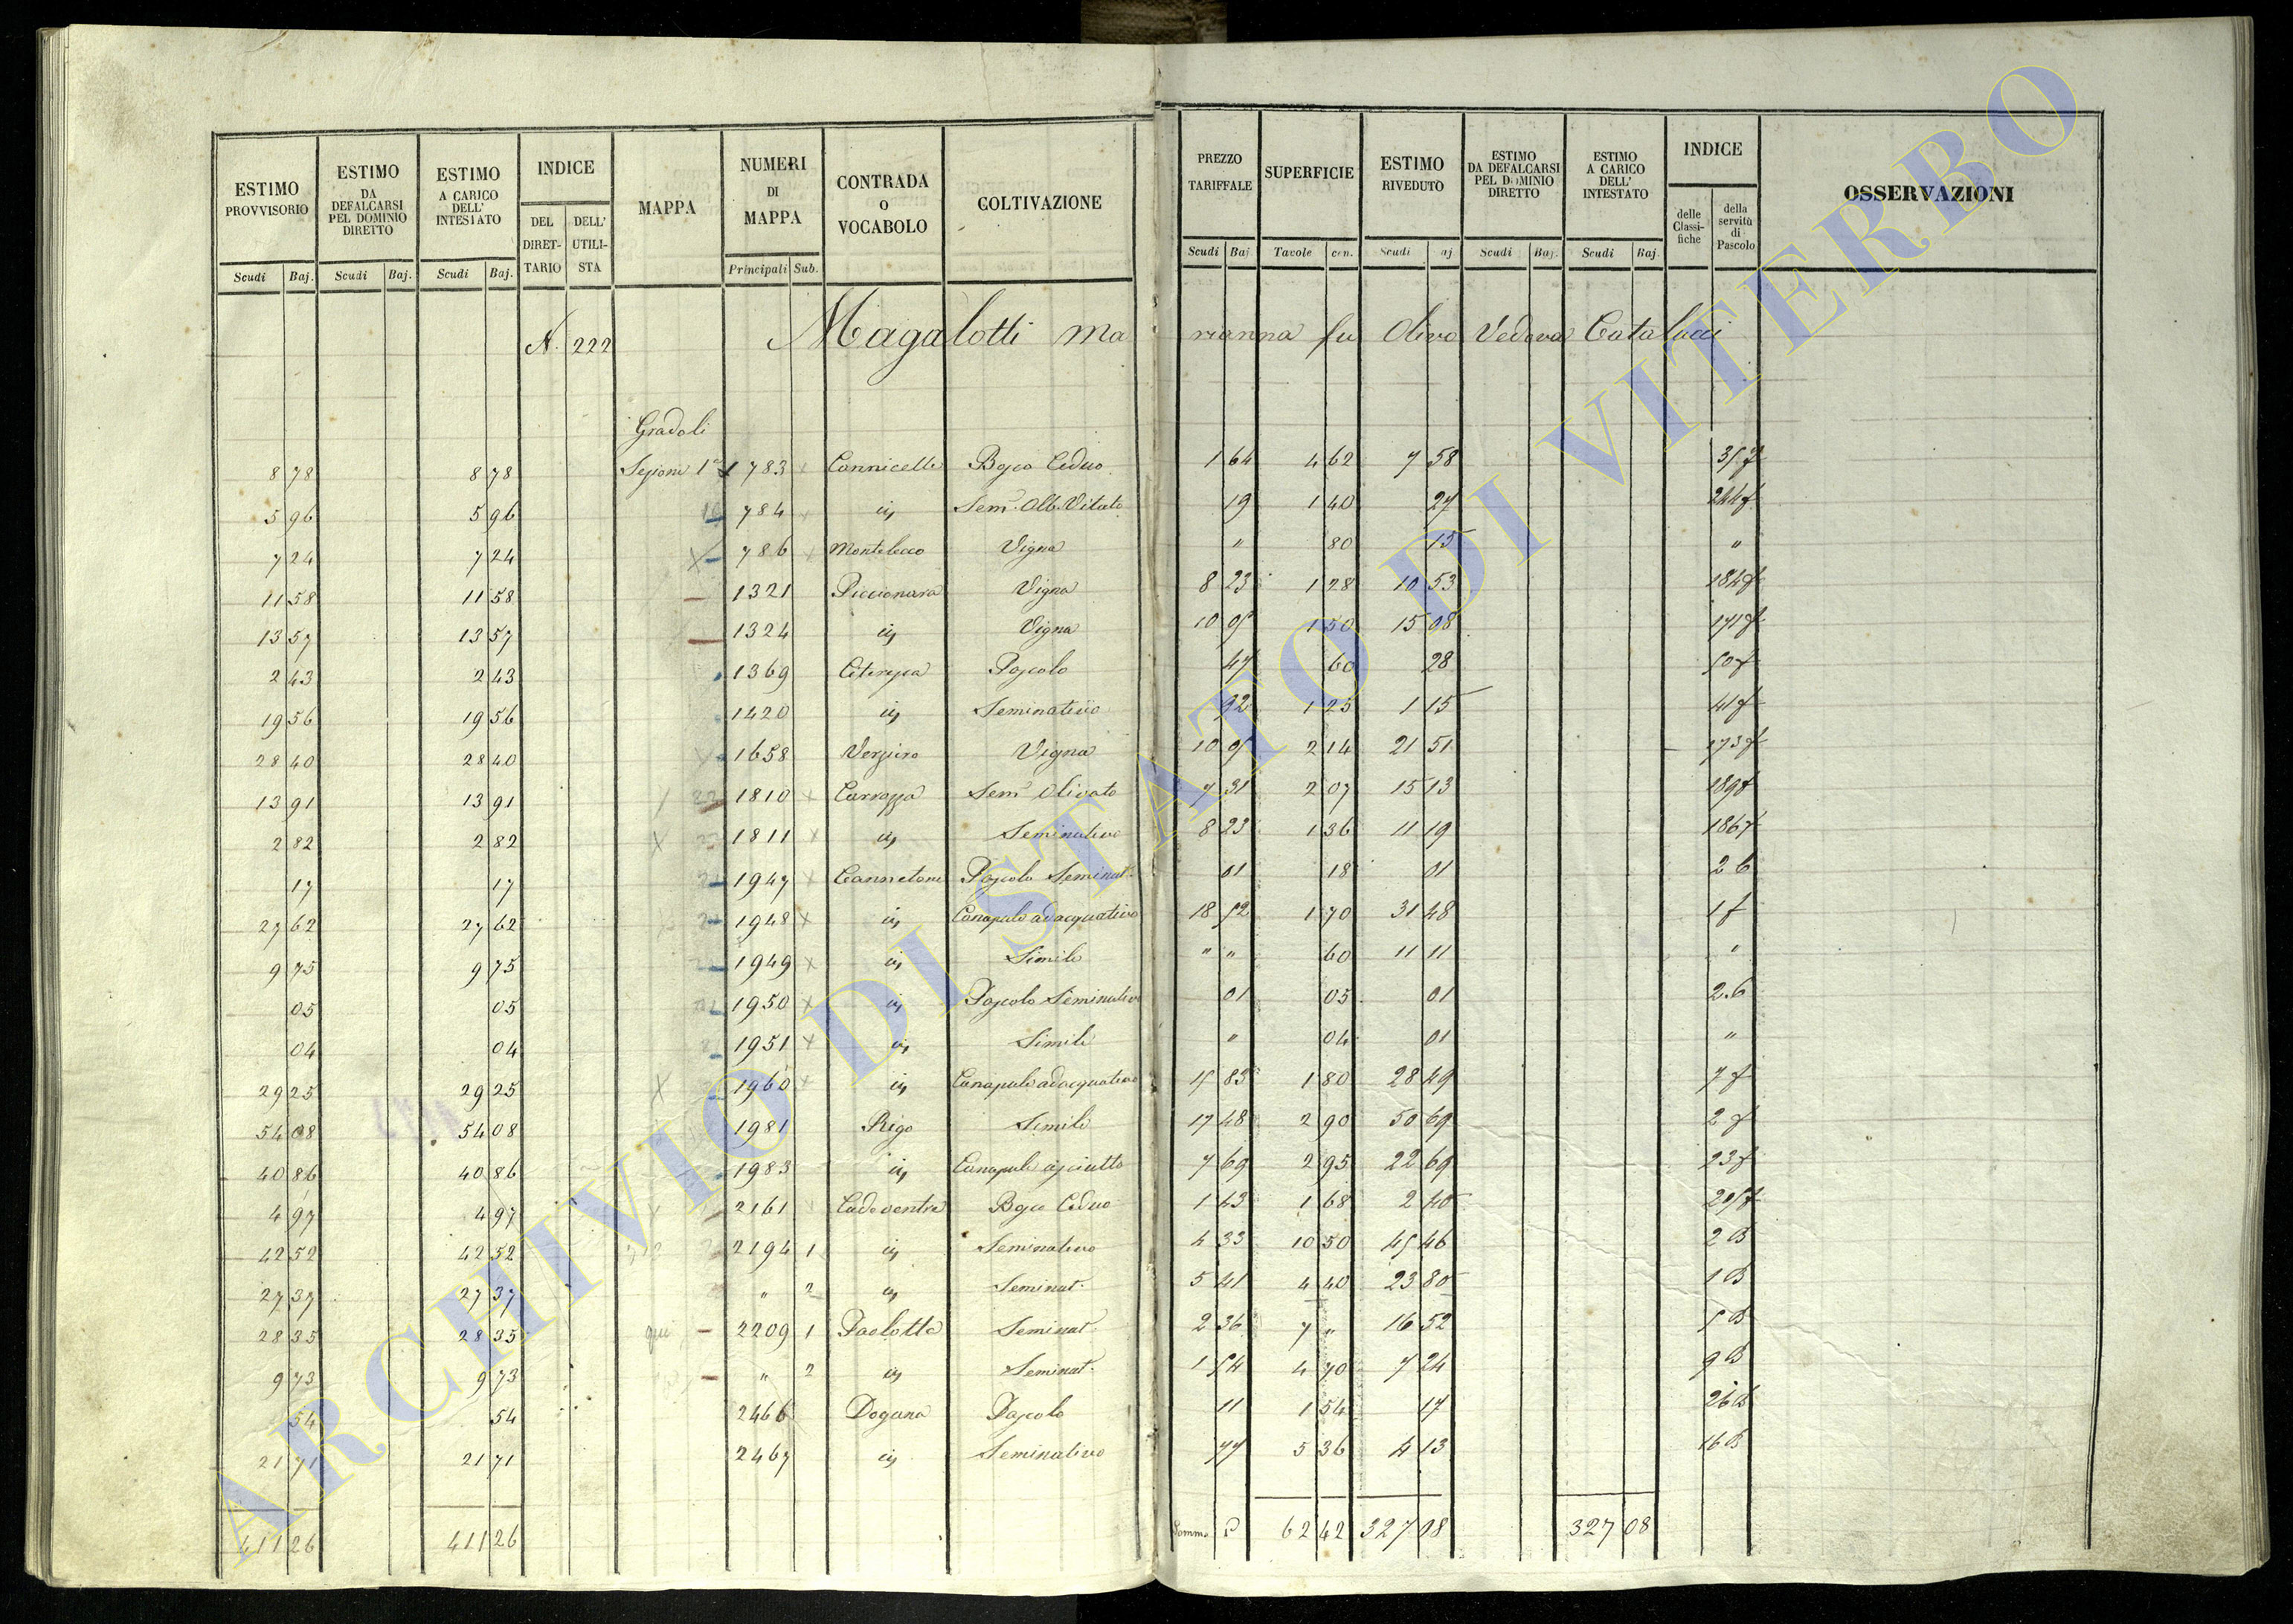 ESTIMO PROVVISORIO | ESTIMO DA DEFALCARSI PEL DOMINIO DIRETTO | ESTIMO A CARICO DELL' INTESTATO | INDICE | MAPPA | NUMERI DI MAPPA | CONTRADA O VOCABOLO | COLTIVAZIONE | PREZZO TARIFFALE | SUPERFICIE | ESTIMO RIVEDUTO | ESTIMO DA DEFALCARSI PEL DOMINIO DIRETTO | ESTIMO A CARICO DELL' INTESTATO | INDICE | OSSERVAZIONI
DEL DIRETTARIO | DELL' UTILISTA | delle Classifiche | della servitù di Pascolo
Scudi | Baj. | Scudi | Baj. | Scudi | Baj. | Principali | Sub. | Scudi | Baj | Tavole | cen. | Scudi | aj | Scudi | Baj. | Scudi | Baj.
N. 222 Magalotti Marianna fu Olivo Vedova Catalucci
Gradoli
8 78 | 8 78 | Sezione 1a | 783 | Cannicelle | Bosco Ceduo | 1 64 | 4 62 | 7 58
5 96 | 5 96 | 784 | in | Sem. Alb. Vitato | 19 | 1 40 | 27 | 244
7 24 | 7 24 | 786 | Vigna | " | 80 | 15 | "
11 58 | 11 58 | 1321 | Piccionara | Vigna | 8 23 | 1 28 | 10 53 | 184
13 57 | 13 57 | 1324 | in | Vigna | 10 05 | 1 50 | 15 08 | 171
2 43 | 2 43 | 1369 | Pascolo | 47 | 60 | 28
19 56 | 19 56 | 1420 | in | Seminativo | 92 | 1 25 | 1 15 | 41
28 40 | 28 40 | 1658 | Verziero | Vigna | 10 05 | 2 14 | 21 51 | 173
13 91 | 13 91 | 1810 | Carrozza | Sem. Olivato | 7 31 | 2 07 | 15 13 | 189
2 82 | 2 82 | 1811 | in | Seminativo | 8 23 | 1 36 | 11 19 | 186
17 | 17 | 1947 | Cannetone | Pascolo Seminat. | 01 | 18 | 01 | 26
27 62 | 27 62 | 1948 | in | Canapule adacquativo | 18 52 | 1 70 | 31 48 | 1
9 75 | 9 75 | 1949 | in | Simile | " " | 60 | 11 11 | "
05 | 05 | 1950 | in | Pascolo Seminativo | 01 | 05 | 01 | 26
04 | 04 | 1951 | in | Simile | " | 04 | 01 | "
29 25 | 29 25 | 1960 | in | Canapule adacquativo | 15 83 | 1 80 | 28 49 | 7
54 08 | 54 08 | 1981 | Rigo | Simile | 17 48 | 2 90 | 50 69 | 2
40 86 | 40 86 | 1983 | in | Canapule asciutto | 7 69 | 2 95 | 22 69 | 23
4 97 | 4 97 | 2161 | Cadeventre | Bosco Ceduo | 1 43 | 1 68 | 2 40
42 52 | 42 52 | 2194 | 1 | in | Seminativo | 4 33 | 10 50 | 45 46 | 2 B
27 37 | 27 37 | " | 2 | in | Seminat. | 5 41 | 4 40 | 23 80 | 1 B
28 35 | 28 35 | qui | 2209 | 1 | Paolotta | Seminat. | 2 36 | 7 " | 16 52 | 5 B
9 73 | 9 73 | " | 2 | in | Seminat. | 1 54 | 4 70 | 7 24 | 9 B
54 | 54 | 2466 | Dogana | Pascolo | 11 | 1 54 | 17 | 26 B
21 71 | 21 71 | 2467 | in | Seminativo | 77 | 5 36 | 4 13 | 16 B
411 26 | 411 26 | Somma | 62 42 | 327 08 | 327 08
ARCHIVIO DI STATO DI VITERBO